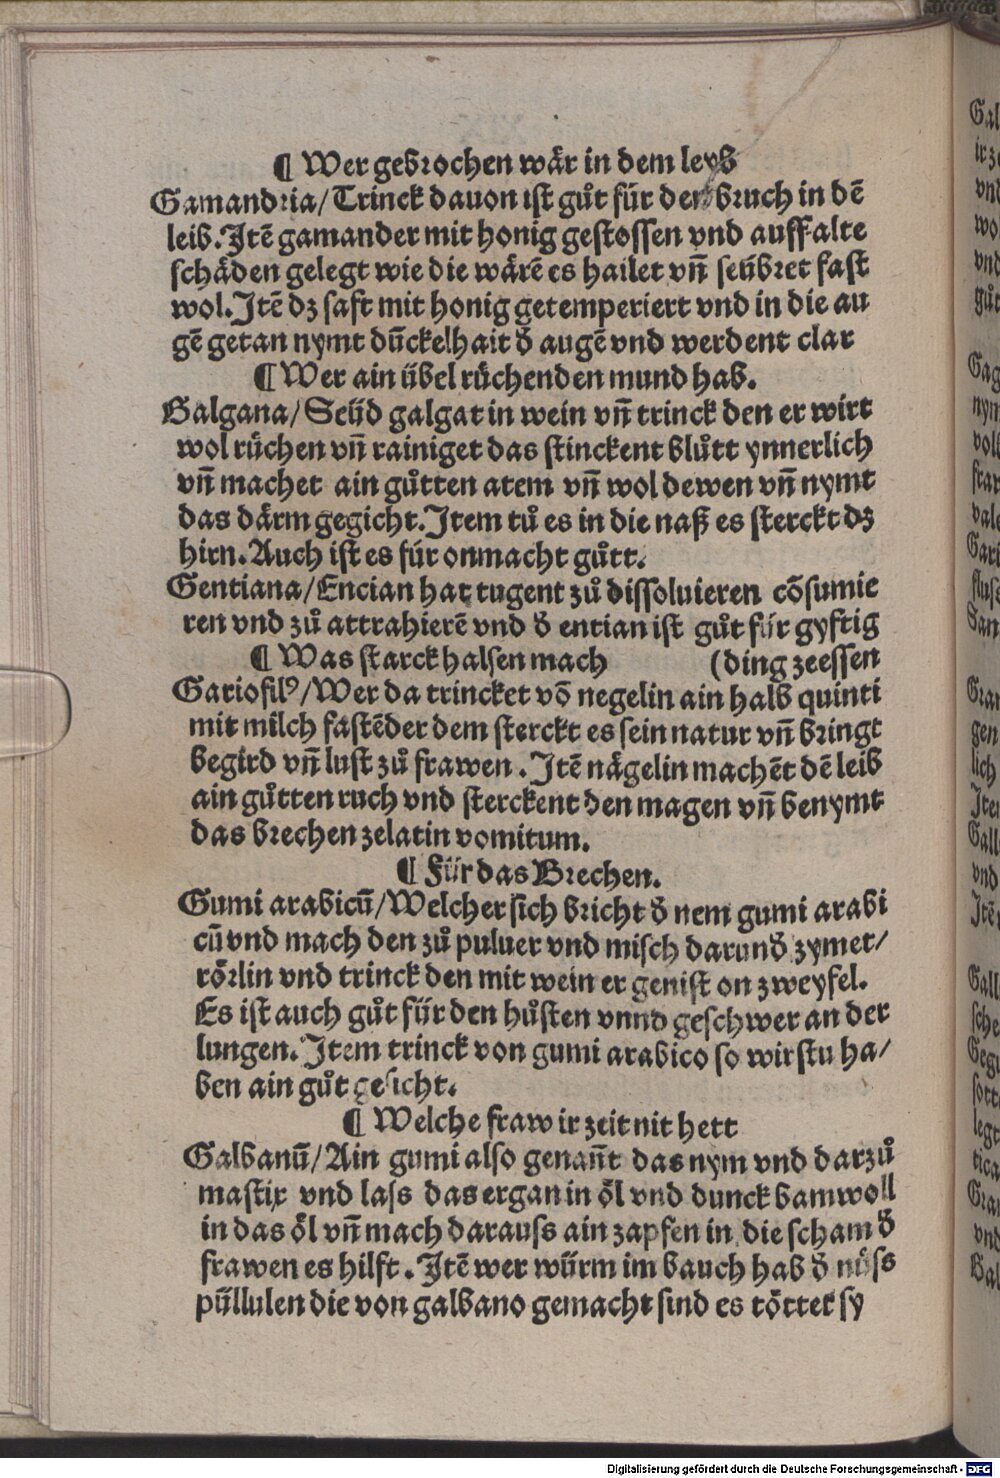 ¶ Wer gebrochen wär in dem leyb
Gamandria/Trinck dauon ist gůt für den bruch in dē
leib. Jtē gamander mit honig gestossen vnd auff alte
schäden gelegt wie die wärē es hailet vn̄ seübret fast
wol. Jtē dz saft mit honig getemperiert vnd in die au
gē getan nymt dūckelhait d̕ augē vnd werdent clar
¶ Wer ain übel rüchenden mund hab.
Galgana/Seüd galgat in wein vn̄ trinck den er wirt
wol rüchen vn̄ rainiget das stinckent blůtt ynnerlich
vn̄ machet ain gůtten atem vn̄ wol dewen vn̄ nymt
das därm gegicht. Jtem tů es in die naß es sterckt dz
hirn. Auch ist es für onmacht gůtt.
Gentiana/Encian hat tugent zů dissoluieren cōsumie
ren vnd zů attrahierē vnd d̕ entian ist gůt für gyftig
¶ Was starck halsen mach (ding zeessen
Gariofilꝰ/Wer da trincket vō negelin ain halb quinti
mit milch fastēder dem sterckt es sein natur vn̄ bringt
begird vn̄ lust zů frawen. Jtē nägelin machēt dē leib
ain gůtten ruch vnd sterckent den magen vn̄ benymt
das brechen zelatin vomitum.
¶ Für das Brechen.
Gumi arabicū/Welcher sich bricht d̕ nem gumi arabi
cū vnd mach den zů puluer vnd misch darund̕ zymet/
rörlin vnd trinck den mit wein er genist on zweyfel.
Es ist auch gůt für den hůsten vnnd geschwer an der
lungen. Jtem trinck von gumi arabico so wirstu ha/
ben ain gůt gesicht.
¶ Welche fraw ir zeit nit hett
Galbanū/Ain gumi also genan̄t das nym vnd darzů
mastix vnd lass das ergan in öl vnd dunck bamwoll
in das öl vn̄ mach darauss ain zapfen in die scham d̕
frawen es hilft. Jtē wer würm im bauch hab d̕ nüss
püllulen die von galbano gemacht sind es töttet sy
Digitalisierung gefördert durch die Deutsche Forschungsgemeinschaft - DFG